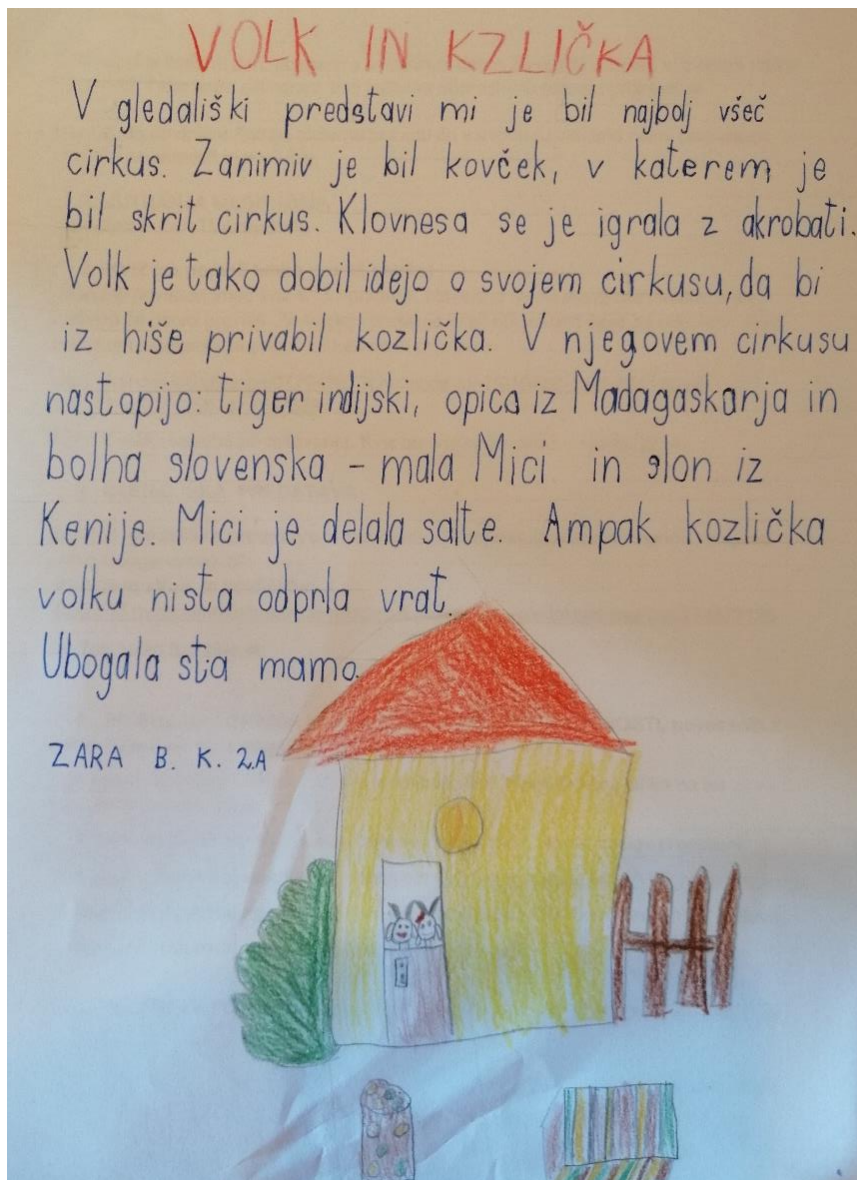 VOLK IN KZLIČKA
V gledališki predstavi mi je bil najbolj všeč
cirkus. Zanimiv je bil kovček, v katerem je
bil skrit cirkus. Klovnesa se je igrala z akrobati.
Volk je tako dobil idejo o svojem cirkusu, da bi
iz hiše privabil kozlička. V njegovem cirkusu
nastopijo: tiger indijski, opica iz Madagaskarja in
bolha slovenska - mala Mici in slon iz
Kenije. Mici je delala salte. Ampak kozlička
volku nista odprla vrat.
Ubogala sta mamo.
ZARA B. K. 2.A